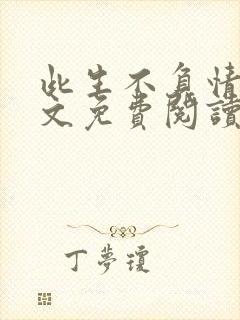 此生不負情
文免費閱讀
丁夢瓊